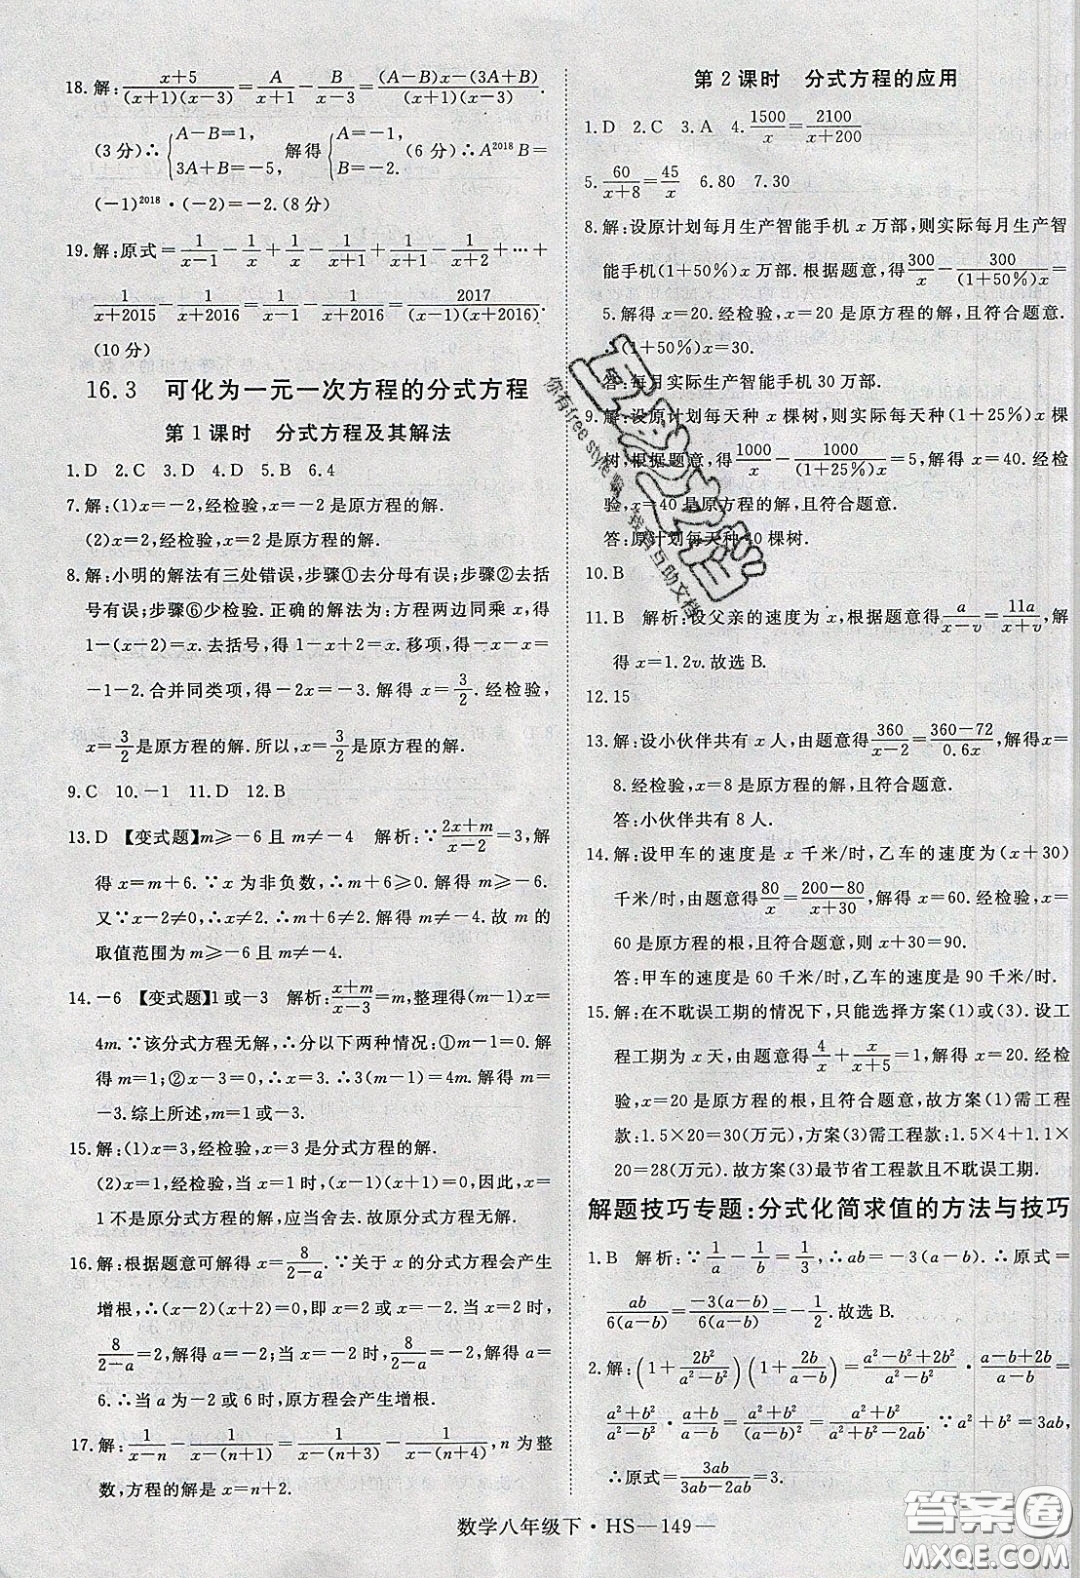 18.解:\frac{x+5}{(x+1)(x-3)}=\frac{A}{x+1}-\frac{B}{x-3}=\frac{(A-B)x-(3A+B)}{(x+1)(x-3)}.
(3分)∴{A-B=1, 3A+B=-5, 解得{A=-1, B=-2. (6分)∴A²⁰¹⁸B=
(-1)²⁰¹⁸·(-2)=-2.(8分)
19.解:原式=\frac{1}{x-1}-\frac{1}{x}+\frac{1}{x}-\frac{1}{x+1}+\frac{1}{x+1}-\frac{1}{x+2}+…+
\frac{1}{x+2015}-\frac{1}{x+2016}=\frac{1}{x-1}-\frac{1}{x+2016}=\frac{2017}{(x-1)(x+2016)}.
(10分)
16.3 可化为一元一次方程的分式方程
第1课时 分式方程及其解法
1.D 2.C 3.D 4.D 5.B 6.4
7.解:(1)x=-2,经检验,x=-2是原方程的解.
(2)x=2,经检验,x=2是原方程的解.
8.解:小明的解法有三处错误,步骤①去分母有误;步骤②去括
号有误;步骤⑥少检验.正确的解法为:方程两边同乘x,得
1-(x-2)=x.去括号,得1-x+2=x.移项,得-x-x=
-1-2.合并同类项,得-2x=-3.解得x=\frac{3}{2}.经检验,
x=\frac{3}{2}是原方程的解.所以,原方程的解为x=\frac{3}{2}.
9.C 10.-1 11.D 12.B
13.D 【变式题】m≥-6且m≠-4 解析:∵\frac{2x+m}{x-2}=3,解
得x=m+6.∵x为非负数,∴m+6≥0.解得m≥-6.
又∵x-2≠0,∴x≠2.∴m+6≠2.解得m≠-4.故m的
取值范围为m≥-6且m≠-4.
14.-6 【变式题】1或-3 解析:\frac{x+m}{x-3}=m,整理得(m-1)x=
4m.∵该分式方程无解,∴分以下两种情况:①m-1=0.
解得m=1;②x-3=0.∴x=3.∴3(m-1)=4m.解得m=
-3.综上所述,m=1或-3.
15.解:(1)x=3,经检验,x=3是分式方程的解.
(2)x=1,经检验,当x=1时,方程两边都无意义,因此,x=
1不是原分式方程的解.故原分式方程无解.
16.解:根据题意可解得x=\frac{8}{2-a}.∵关于x的分式方程会产生
增根,∴(x-2)(x+2)=0,即x=2或x=-2.当x=2时,
\frac{8}{2-a}=2,解得a=-2;当x=-2时,\frac{8}{2-a}=-2,解得a=
6.∴当a为-2或6时,原方程会产生增根.
17.解:\frac{1}{x-n}-\frac{1}{x-(n+1)}=\frac{1}{x-(n+3)}-\frac{1}{x-(n+4)},n为整
数,方程的解是x=n+2.
第2课时 分式方程的应用
1.D 2.C 3.A 4.\frac{1500}{x}=\frac{2100}{x+200}
5.\frac{60}{x+8}=\frac{45}{x} 6.80 7.30
8.解:设原计划每月生产智能手机x万部,则实际每月生产智
能手机(1+50%)x万部.根据题意,得\frac{300}{x}-\frac{300}{(1+50%)x}=
5.解得x=20.经检验,x=20是原方程的解,且符合题意.
∴(1+50%)x=30.
答:每月实际生产智能手机30万部.
9.解:设原计划每天种x棵树,则实际每天种(1+25%)x棵
树,根据题意,得\frac{1000}{x}-\frac{1000}{(1+25%)x}=5,解得x=40.经检
验,x=40是原方程的解,且符合题意.
答:原计划每天种40棵树.
10.B
11.B 解析:设父亲的速度为x,根据题意得\frac{a}{x-v}=\frac{11a}{x+v},解
得x=1.2v.故选B.
12.15
13.解:设小伙伴共有x人,由题意得\frac{360}{x-2}=\frac{360-72}{0.6x},解得x=
8.经检验,x=8是原方程的解,且符合题意.
答:小伙伴共有8人.
14.解:设甲车的速度是x千米/时,乙车的速度为(x+30)
千米/时,由题意得\frac{80}{x}=\frac{200-80}{x+30},解得x=60.经检验,x=
60是原方程的根,且符合题意,则x+30=90.
答:甲车的速度是60千米/时,乙车的速度是90千米/时.
15.解:在不耽误工期的情况下,只能选择方案(1)或(3).设工
程工期为x天,由题意得\frac{4}{x}+\frac{x}{x+5}=1,解得x=20.经检
验,x=20是原方程的根,且符合题意,故方案(1)需工程
款:1.5×20=30(万元),方案(3)需工程款:1.5×4+1.1×
20=28(万元).故方案(3)最节省工程款且不耽误工期.
解题技巧专题:分式化简求值的方法与技巧
1.B 解析:∵\frac{1}{a}-\frac{1}{b}=\frac{1}{3},∴ab=-3(a-b).∴原式=
\frac{ab}{6(a-b)}=\frac{-3(a-b)}{6(a-b)}=-\frac{1}{2}.故选B.
2.解:(1+\frac{2b²}{a²-b²})(1+\frac{2b}{a-b})=\frac{a²-b²+2b²}{a²-b²}·\frac{a-b+2b}{a-b}=
\frac{a²+b²}{a²-b²}·\frac{a+b}{a-b}=\frac{a²+b²}{(a-b)²}=\frac{a²+b²}{a²+b²-2ab}.∵a²+b²=3ab,
∴原式=\frac{3ab}{3ab-2ab}=3.
数学八年级下·HS—149—
你有free style嘛
我有互助文档
答案圈
MXQE.COM